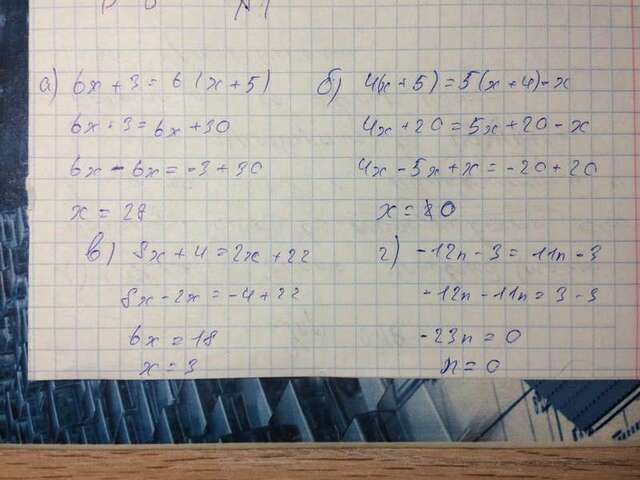 N1
а) 6x + 3 = 6(x + 5)
6x + 3 = 6x + 30
6x - 6x = -3 + 30
x = 28
б) 4(x + 5) = 5(x + 4) - x
4x + 20 = 5x + 20 - x
4x - 5x + x = -20 + 20
x = 0
в) 8x + 4 = 2x + 22
8x - 2x = -4 + 22
6x = 18
x = 3
г) -12n - 3 = -11n - 3
-12n - 11n = 3 - 3
-23n = 0
n = 0